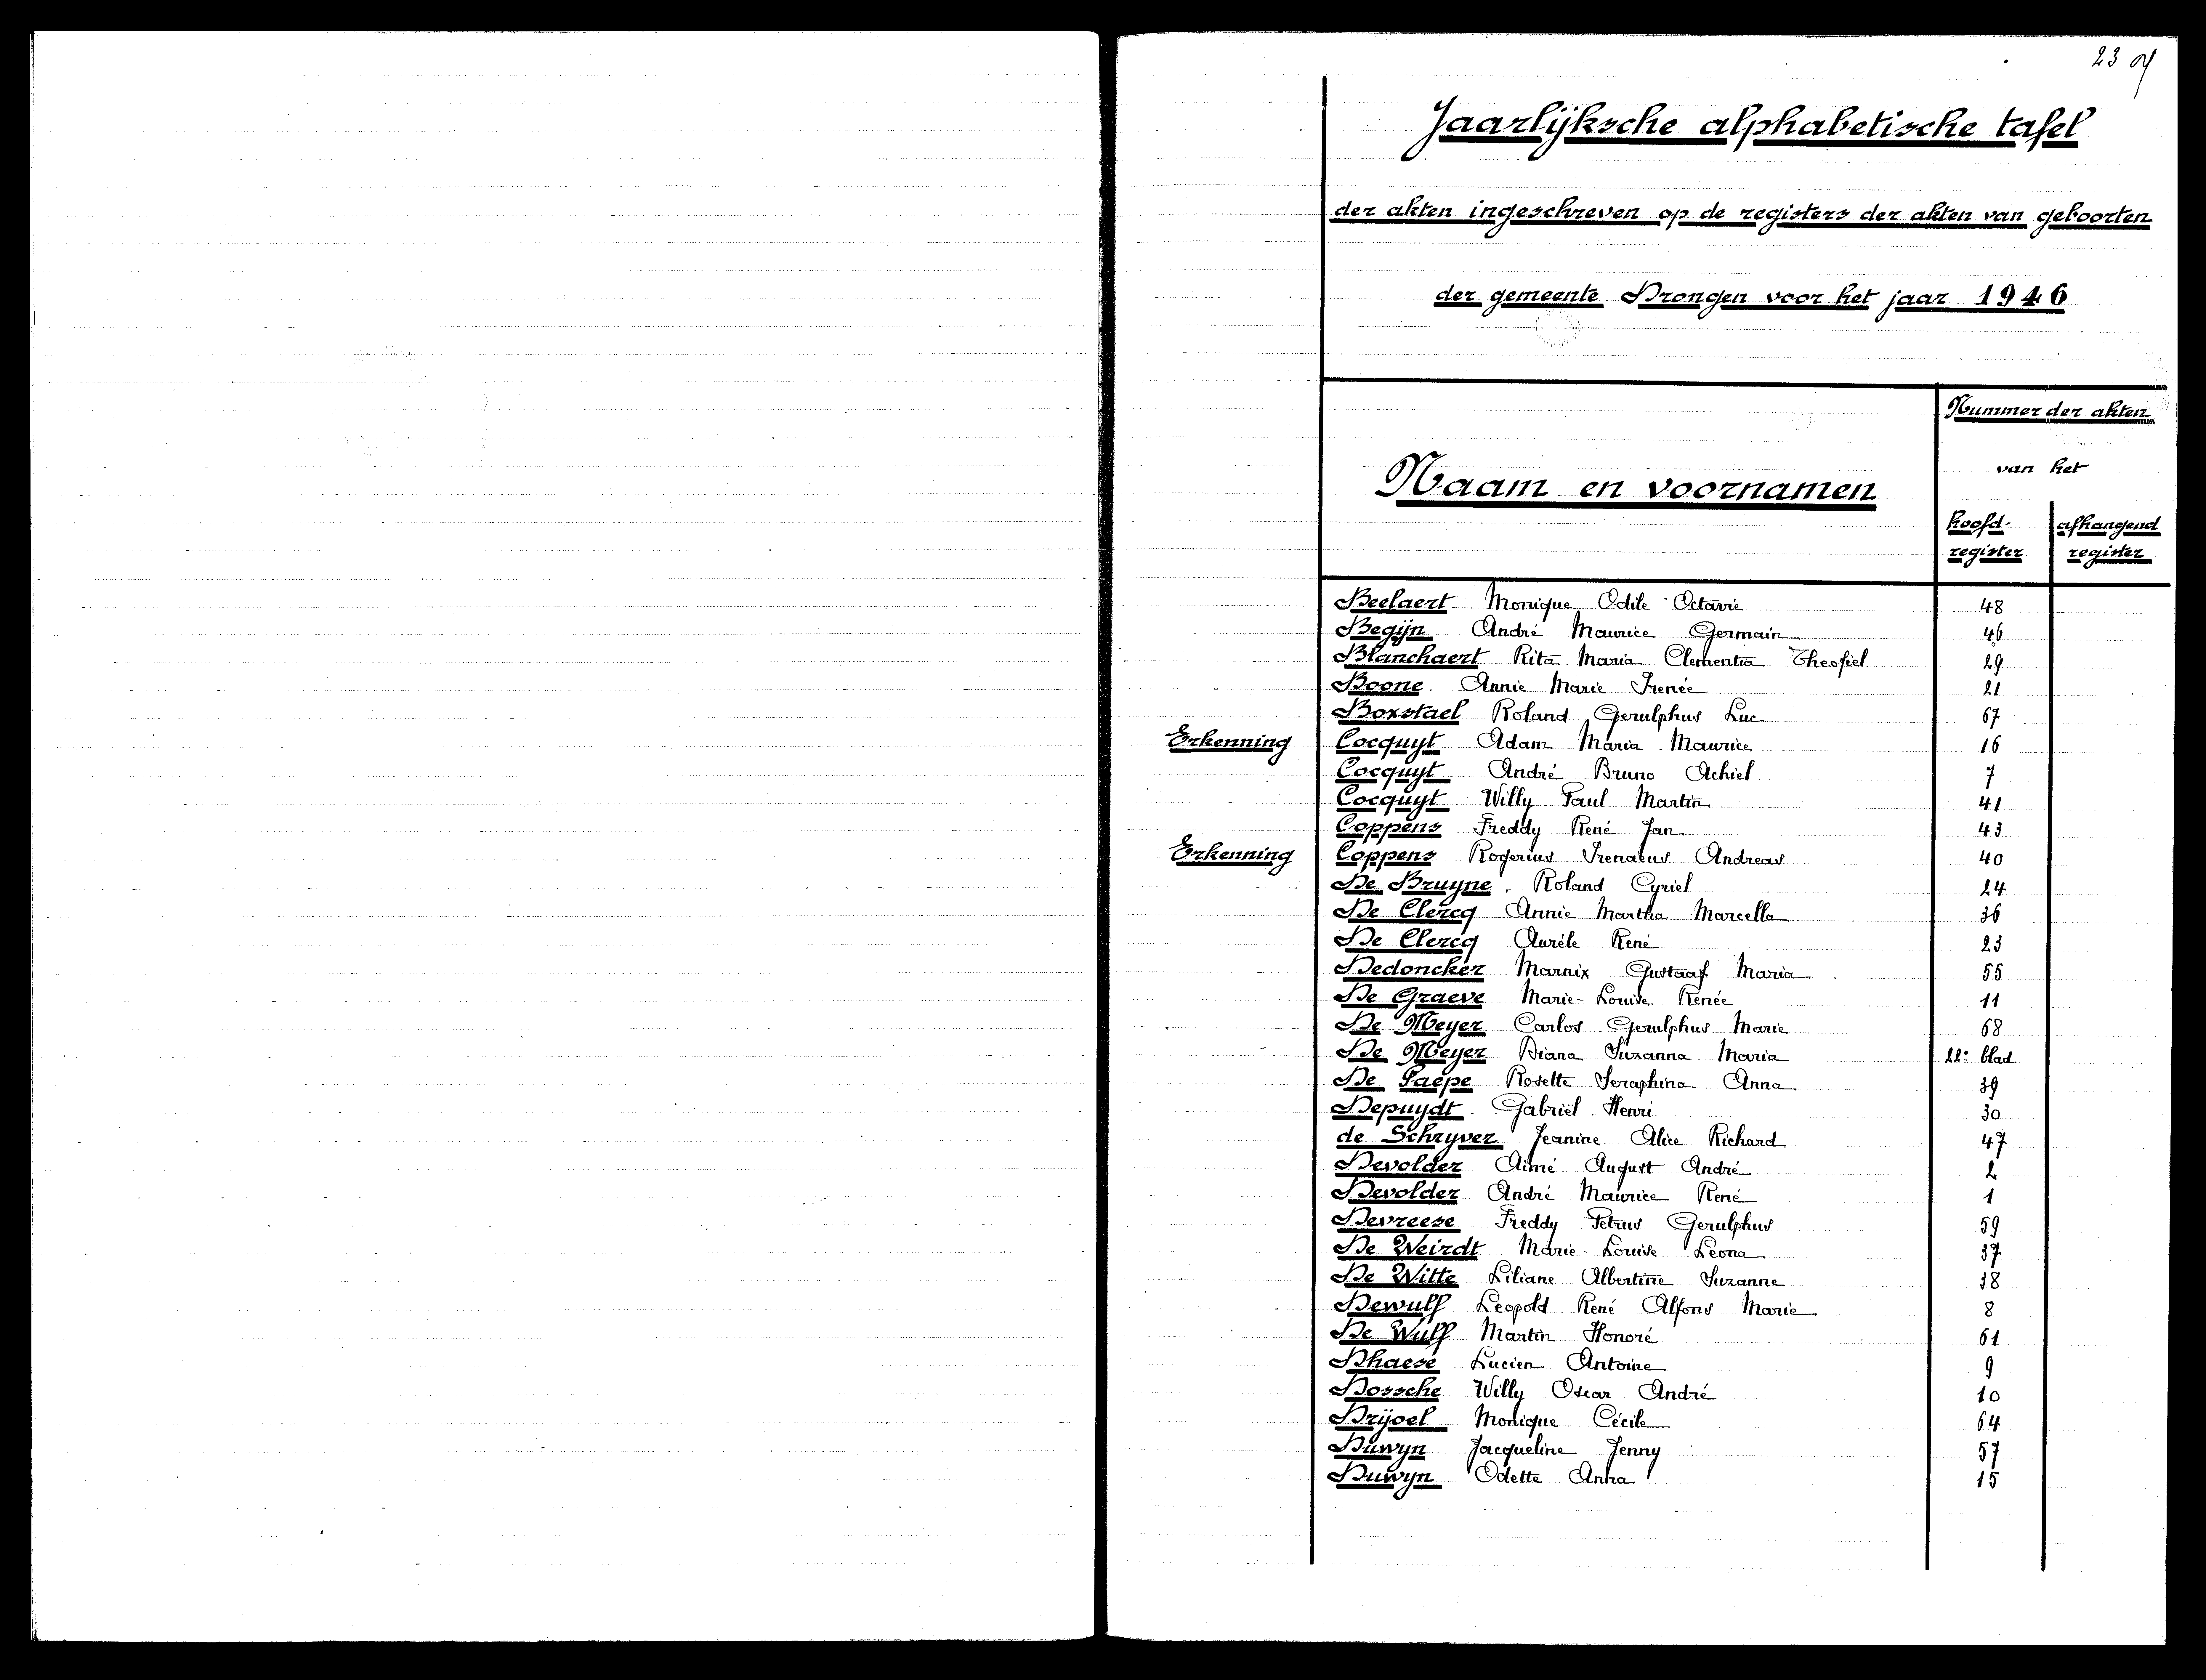 23
Jaarlijksche alphabetische tafel
der akten ingeschreven op de registers der akten van geboorten
der gemeente Drongen voor het jaar 1946
Nummer der akten
van het
Naam en voornamen
hoofd- afhangend
register register
Beelaert Monique Odile Octavie 48
Begijn André Maurice Germain 46
Blanchaert Rita Maria Clementia Theofiel 29
Boone Annie Marie Irenée 21
Boxstael Roland Gerulphus Luc 67
Erkenning Cocquyt Adam Maria Maurice 16
Cocquyt André Bruno Achiel 7
Cocquyt Willy Paul Martin 41
Coppens Freddy René Jan 43
Erkenning Coppens Rogerius Irenaeus Andreas 40
De Bruyne Roland Cyriel 24
De Clercq Annie Martha Marcella 36
De Clercq Aurèle René 23
Dedoncker Marnix Gustaaf Maria 55
De Graeve Marie-Louise Renée 11
De Meyer Carlos Gerulphus Marie 68
De Meyer Diana Suzanna Maria 22e blad
De Paepe Rosette Seraphina Anna 39
Depuydt Gabriël Henri 30
de Schryver Jeanine Alice Richard 47
Devolder Aimé August André 2
Devolder André Maurice René 1
Devreese Freddy Petrus Gerulphus 59
De Weirdt Marie-Louise Leona 37
De Witte Liliane Albertine Suzanne 38
Dewulf Leopold René Alfons Marie 8
De Wulf Martin Honoré 61
Dhaese Lucien Antoine 9
Dossche Willy Oscar André 10
Drijoel Monique Cécile 64
Duwyn Jacqueline Jenny 57
Duwyn Odette Anna 15